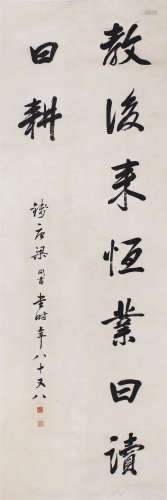 教後来恒業曰讀
曰耕
鑄庵梁同書時年八十又八